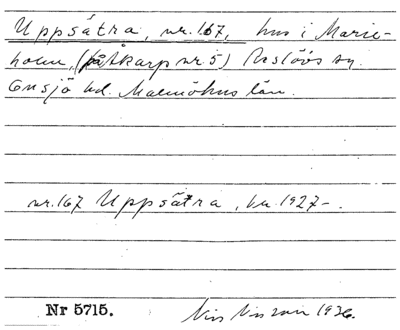 Uppsåtra, nr. 167, hus i Marie-
holm, (på Åkarp nr 5) Reslövs sn.
Onsjö hd. Malmöhus län.
nr. 167 Uppsåtra, bn. 1927–.
Nr 5715.
1936.